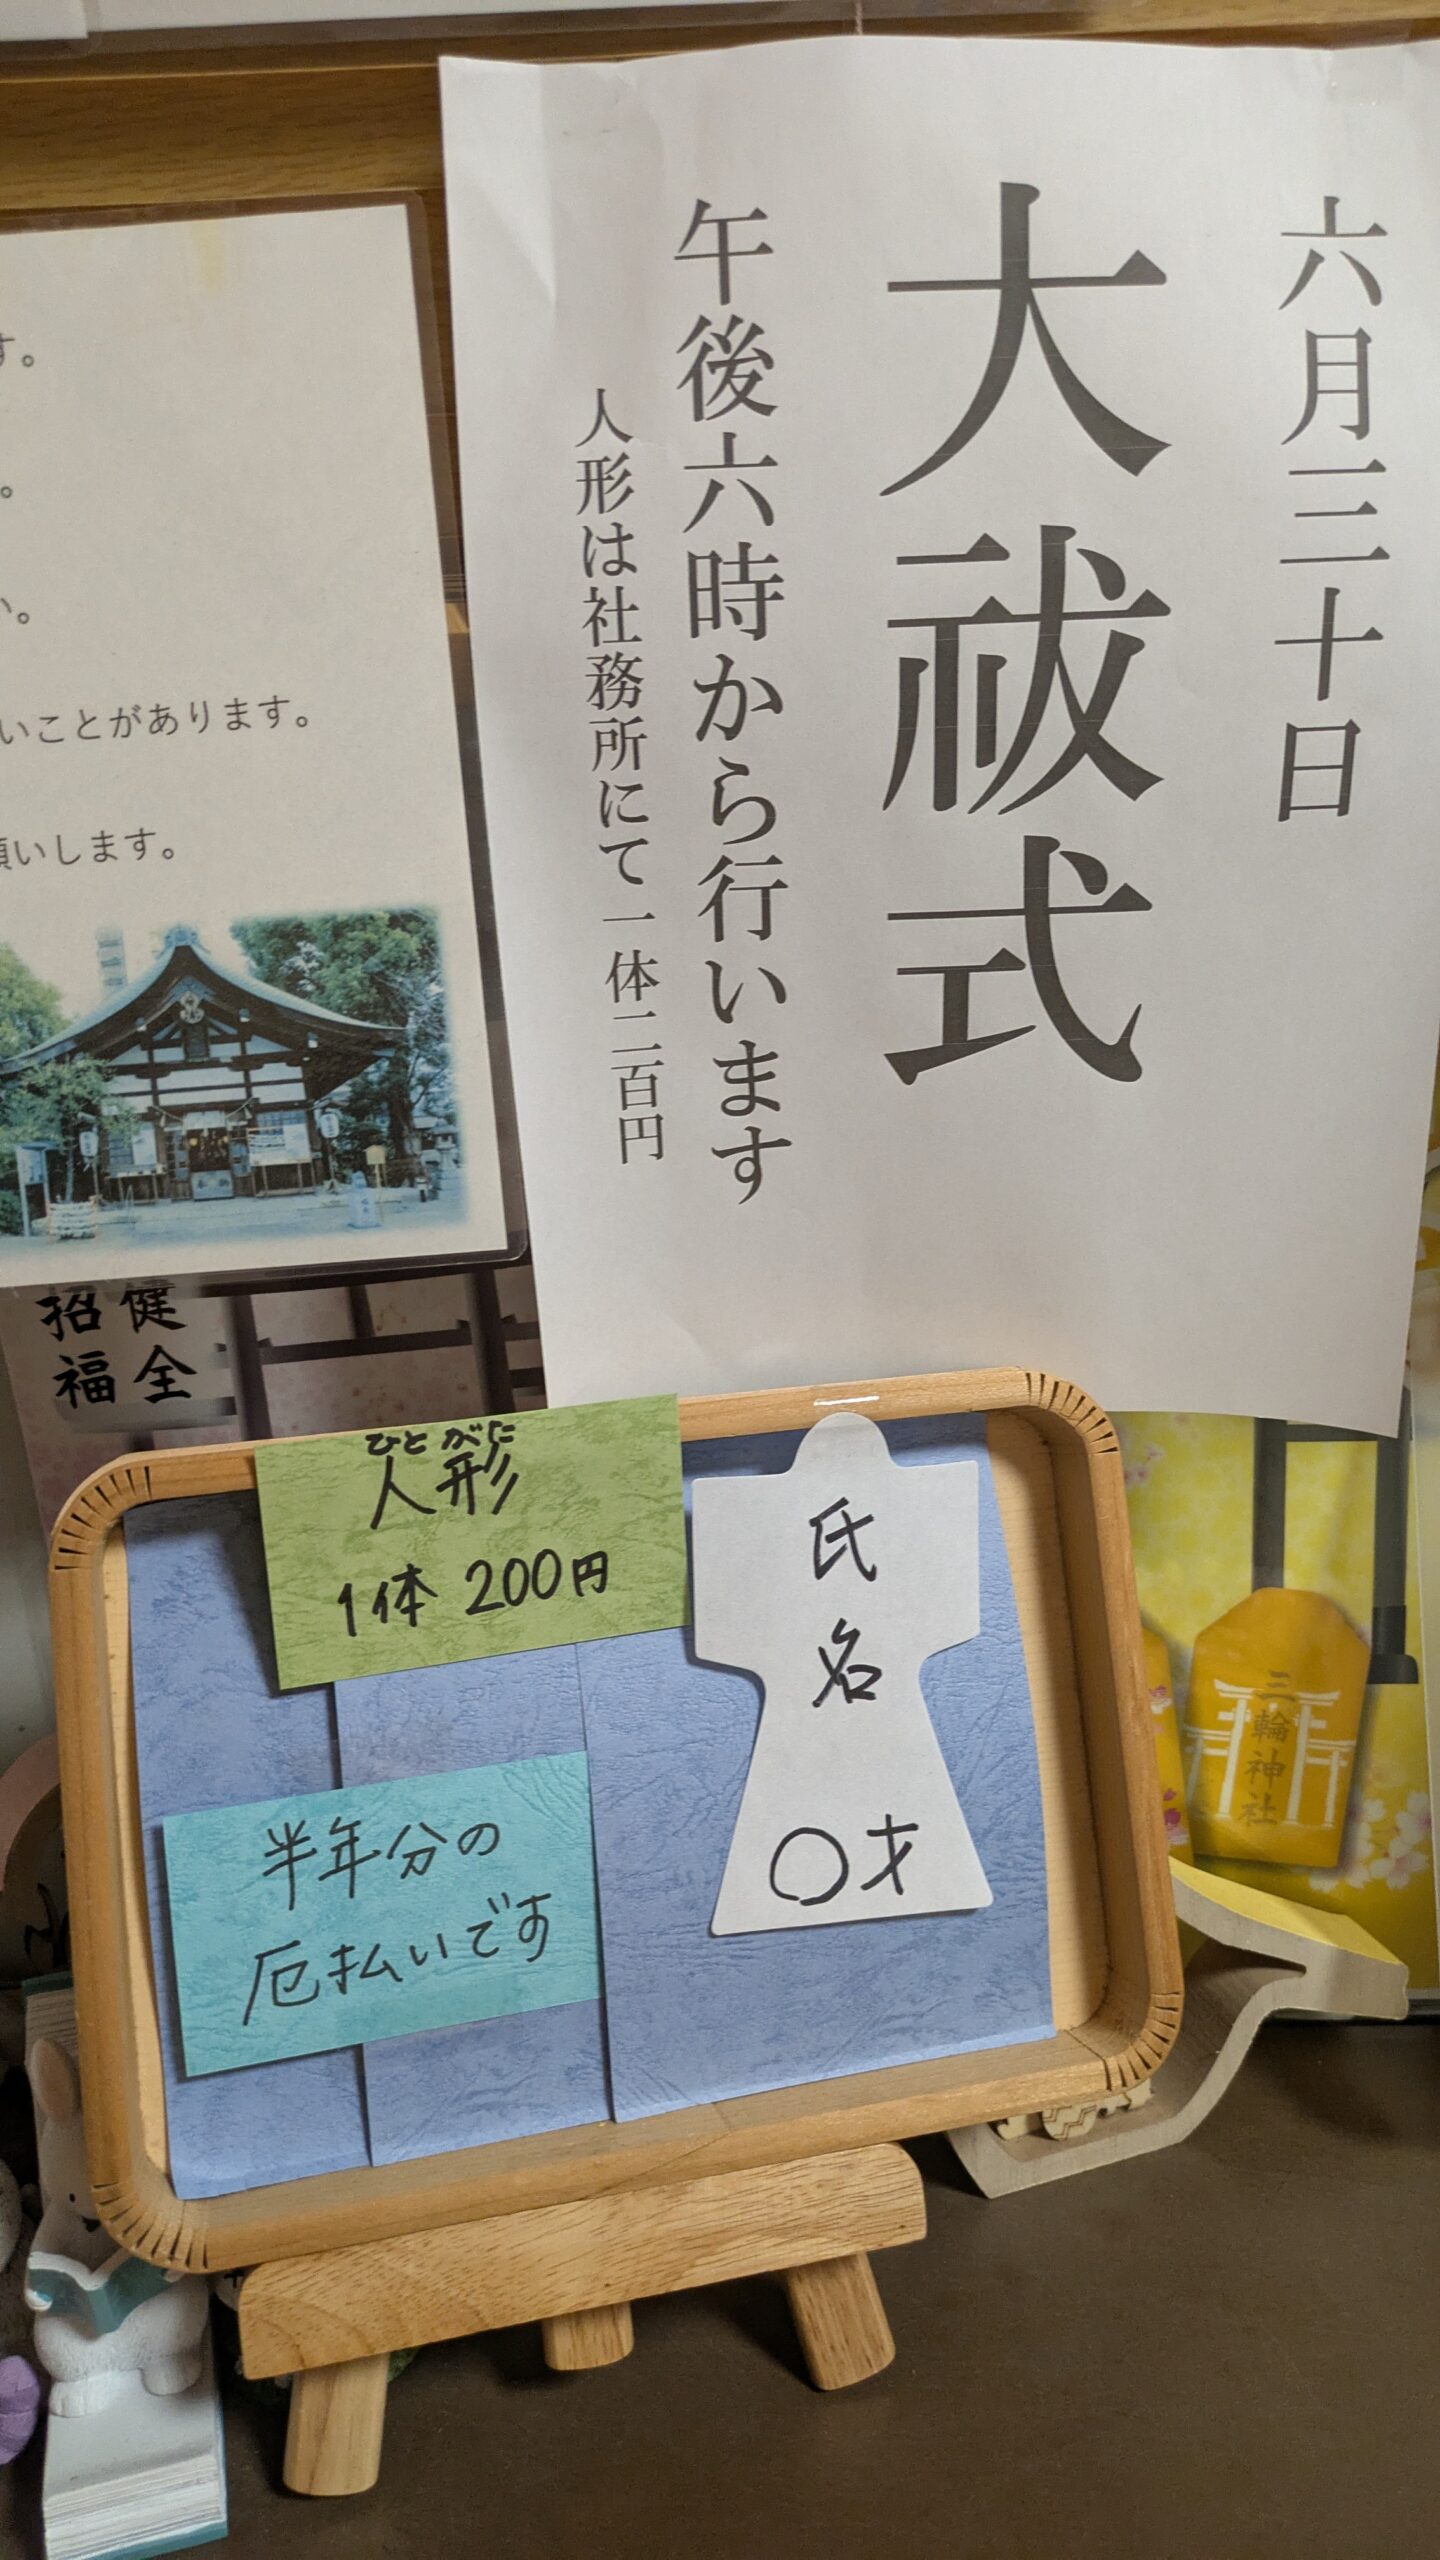 六月三十日
大祓式
午後六時から行います
人形は社務所にて一体二百円
す。
。
い。
いことがあります。
願いします。
健全
招福
ひとがた
人形
1体 200円
半年分の
厄払いです
氏名
〇才
三輪神社